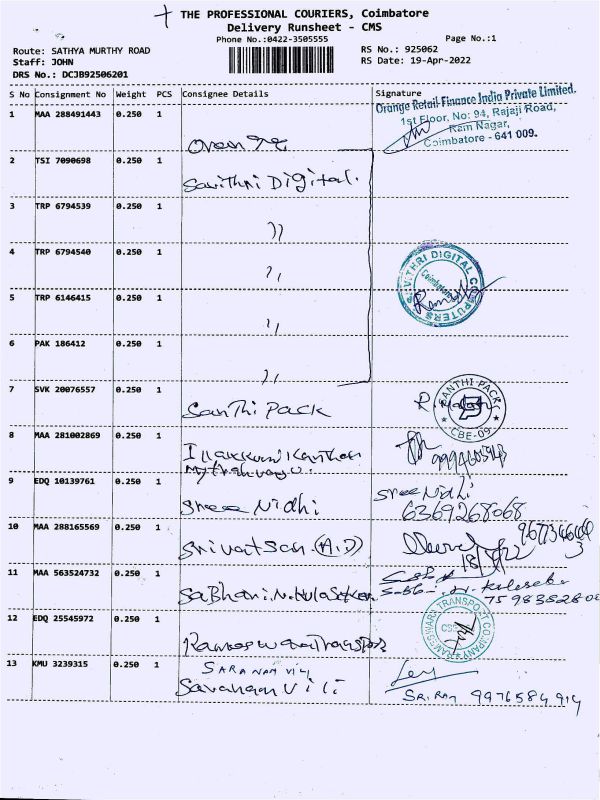 THE PROFESSIONAL COURIERS, Coimbatore
Delivery Runsheet - CMS
Phone No.:0422-3505555
Page No.:1
Route: SATHYA MURTHY ROAD
Staff: JOHN
DRS No.: DCJB92506201
RS No.: 925062
RS Date: 19-Apr-2022
S No Consignment No Weight PCS Consignee Details Signature
1 MAA 288491443 0.250 1
Orange Retail Finance India Private Limited.
1st Floor, No: 94, Rajaji Road,
Ram Nagar,
Coimbatore - 641 009.
2 TSI 7090698 0.250 1 Savithri Digital.
3 TRP 6794539 0.250 1 ))
4 TRP 6794540 0.250 1 ",
5 TRP 6146415 0.250 1 ",
6 PAK 186412 0.250 1 ",
DIGITAL COMPUTERS
Coimbatore
7 SVK 20076557 0.250 1 Santhi Pack
SANTHI PACK
CBE-09
8 MAA 281002869 0.250 1
9 EDQ 10139761 0.250 1 Shree Nidhi
Shree Nidhi
6369268068
10 MAA 288165569 0.250 1 Srivatsan (A.D)
11 MAA 563524732 0.250 1
12 EDQ 25545972 0.250 1
RAMESWARA TRANSPORT COMPANY
13 KMU 3239315 0.250 1
Sriram 9976584914